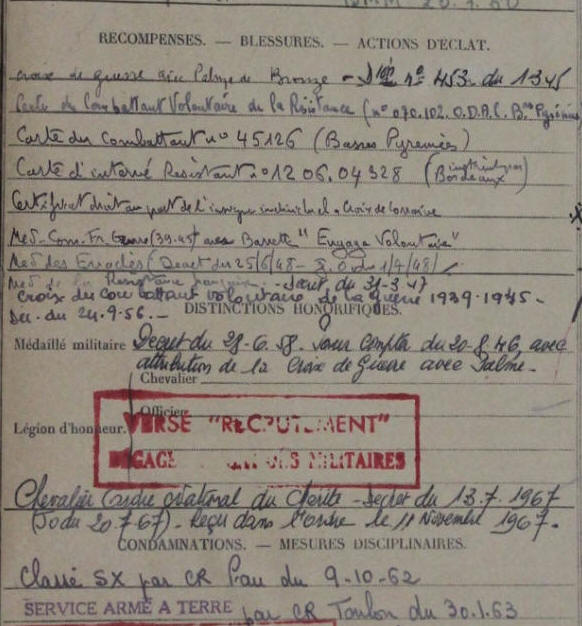 RECOMPENSES. — BLESSURES. — ACTIONS D'ÉCLAT.
croix de guerre avec Palme de Bronze - Don n° 453 du 1945
Carte du Combattant Volontaire de la Résistance (n° 070.102.O.D.A.C. Bses Pyrénées
Carte du Combattant n° 45126 (Basses Pyrenées)
Carte d'interné Résistant n° 12 06.04328 (Bordeaux)
Certificat droit au port de l'insigne individuel Croix de Lorraine
Med. Com. Fr. Guerre (39.45) avec Barrette "Engagé Volontaire"
Med des Evadés (Decret du 25/6/48 - J.O du 1/7/48)
Med de la Résistance - Decret du 31-3-47
Croix du combattant volontaire de la guerre 1939-1945 -
Dec. du 24.9.56. -
DISTINCTIONS HONORIFIQUES.
Médaillé militaire Décret du 28-6.58. pour Compter du 20-8 46, avec
attribution de la Croix de Guerre avec Palme -
Chevalier
Officier
Légion d'honneur.
VERSÉ "RECRUTEMENT"
DÉGAGÉ MILITAIRES
Chevalier Ordre National du Mérite - Decret du 13.7.1967
(JO du 20.7.67) - Reçu dans l'ordre le 11 Novembre 1967.
CONDAMNATIONS. — MESURES DISCIPLINAIRES.
Classé SX par CR Pau du 9-10-62
SERVICE ARMÉ A TERRE par CR Toulon du 30.1.63